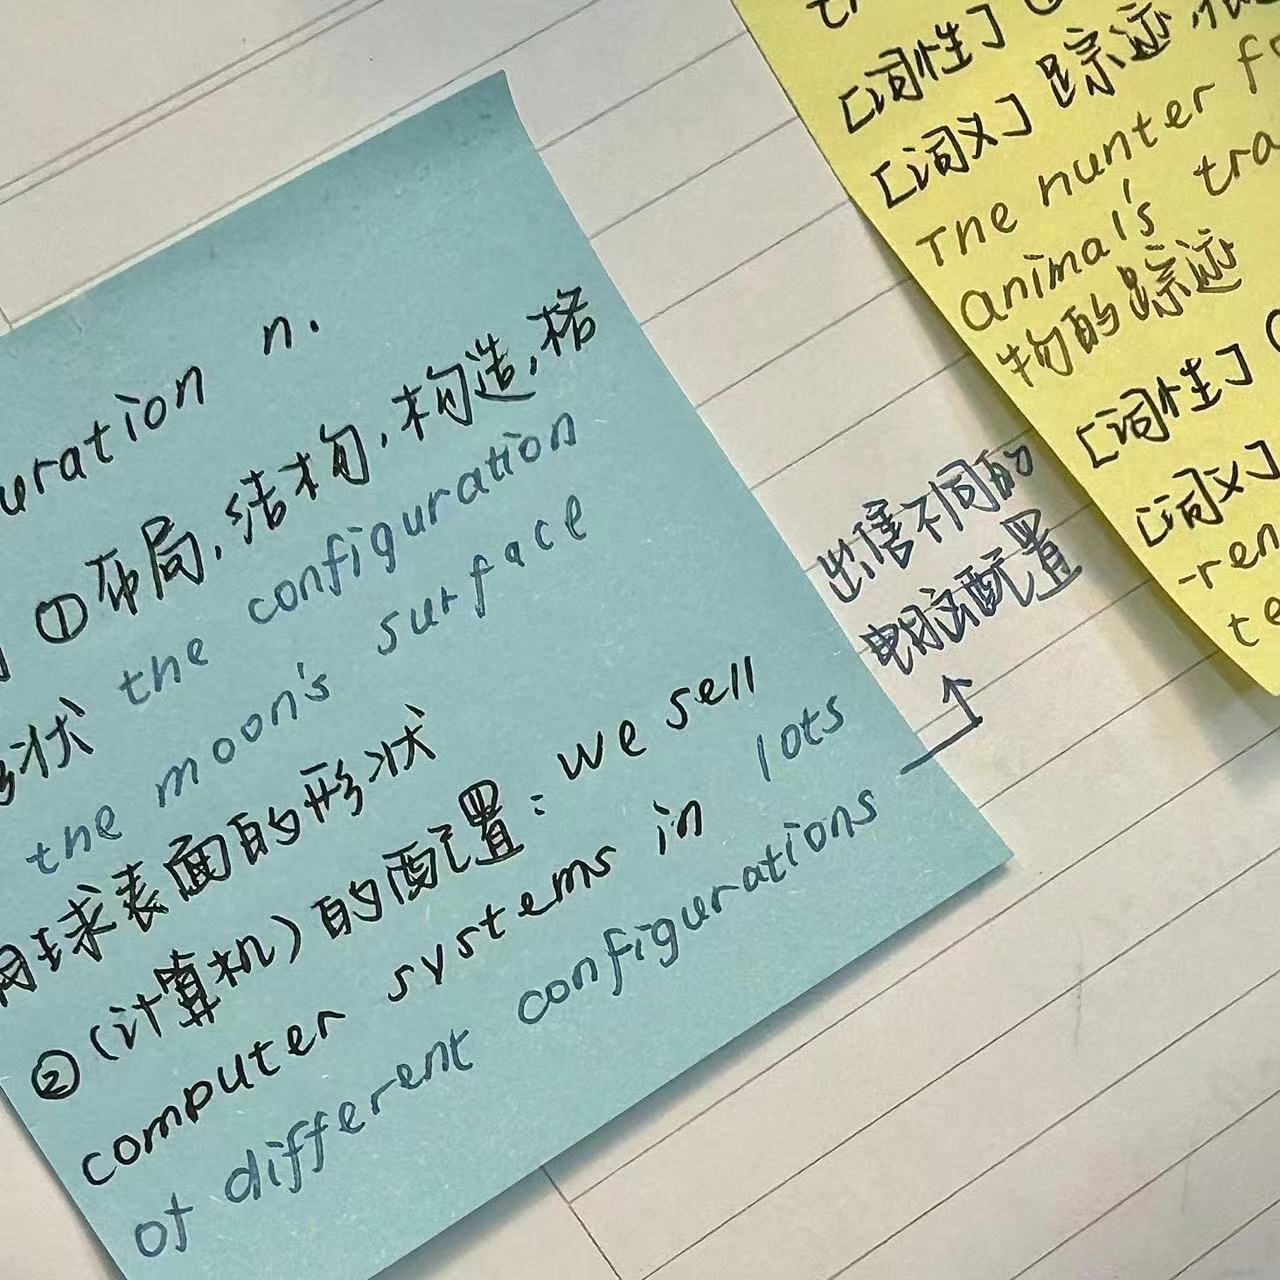 uration n.
①布局,结构,构造,格
状 the configuration
the moon's surface
球表面的形状
②(计算机)的配置: we sell
computer systems in lots
of different configurations
出售不同的
电脑配置
[词性]
[词义] 踪迹
The hunter
animal's tra
物的踪迹
[词性]
[词义]
-ren
te